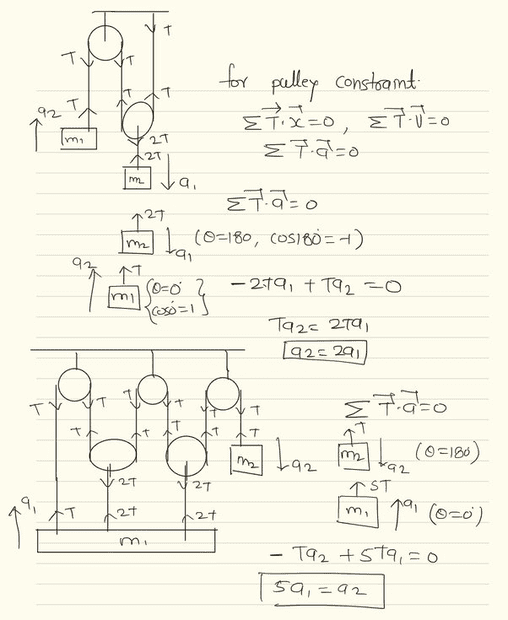 T
T T
T T T
a2
m1
2T
2T
m2 a1
for pulley constraint.
ΣT⃗·x⃗=0, ΣT⃗·v⃗=0
ΣT⃗·a⃗=0
ΣT⃗·a⃗=0
2T
m2 a1 (θ=180, cos180°=-1)
a2 T
m1 {θ=0° cos0°=1}
-2Ta1 + Ta2 = 0
Ta2 = 2Ta1
a2 = 2a1
T T T T T T
T T T T T
m2 a2
2T 2T
a1 T 2T 2T
m1
ΣT⃗·a⃗=0
T
m2 a2 (θ=180°)
5T
m1 a1 (θ=0°)
- Ta2 + 5Ta1 = 0
5a1 = a2